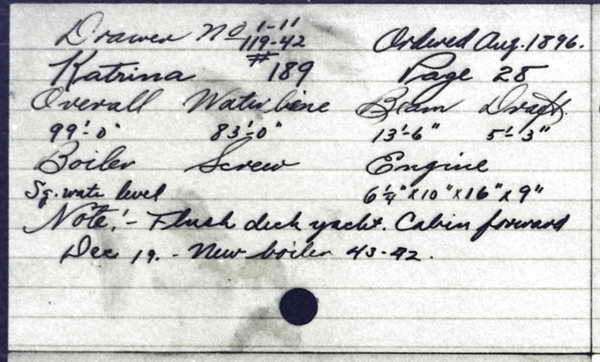 Drawer No 1-11
119-42 Ordered Aug. 1896.
Katrina #189 Page 28
Overall Water line Beam Draft
99'-0" 83'-0" 13'-6" 5'-3"
Boiler Screw Engine
Sq. wate level 6¼" x 10" x 16" x 9"
Note:- Flush deck yacht. Cabin forward
Dec 19. - New boiler 43-42.